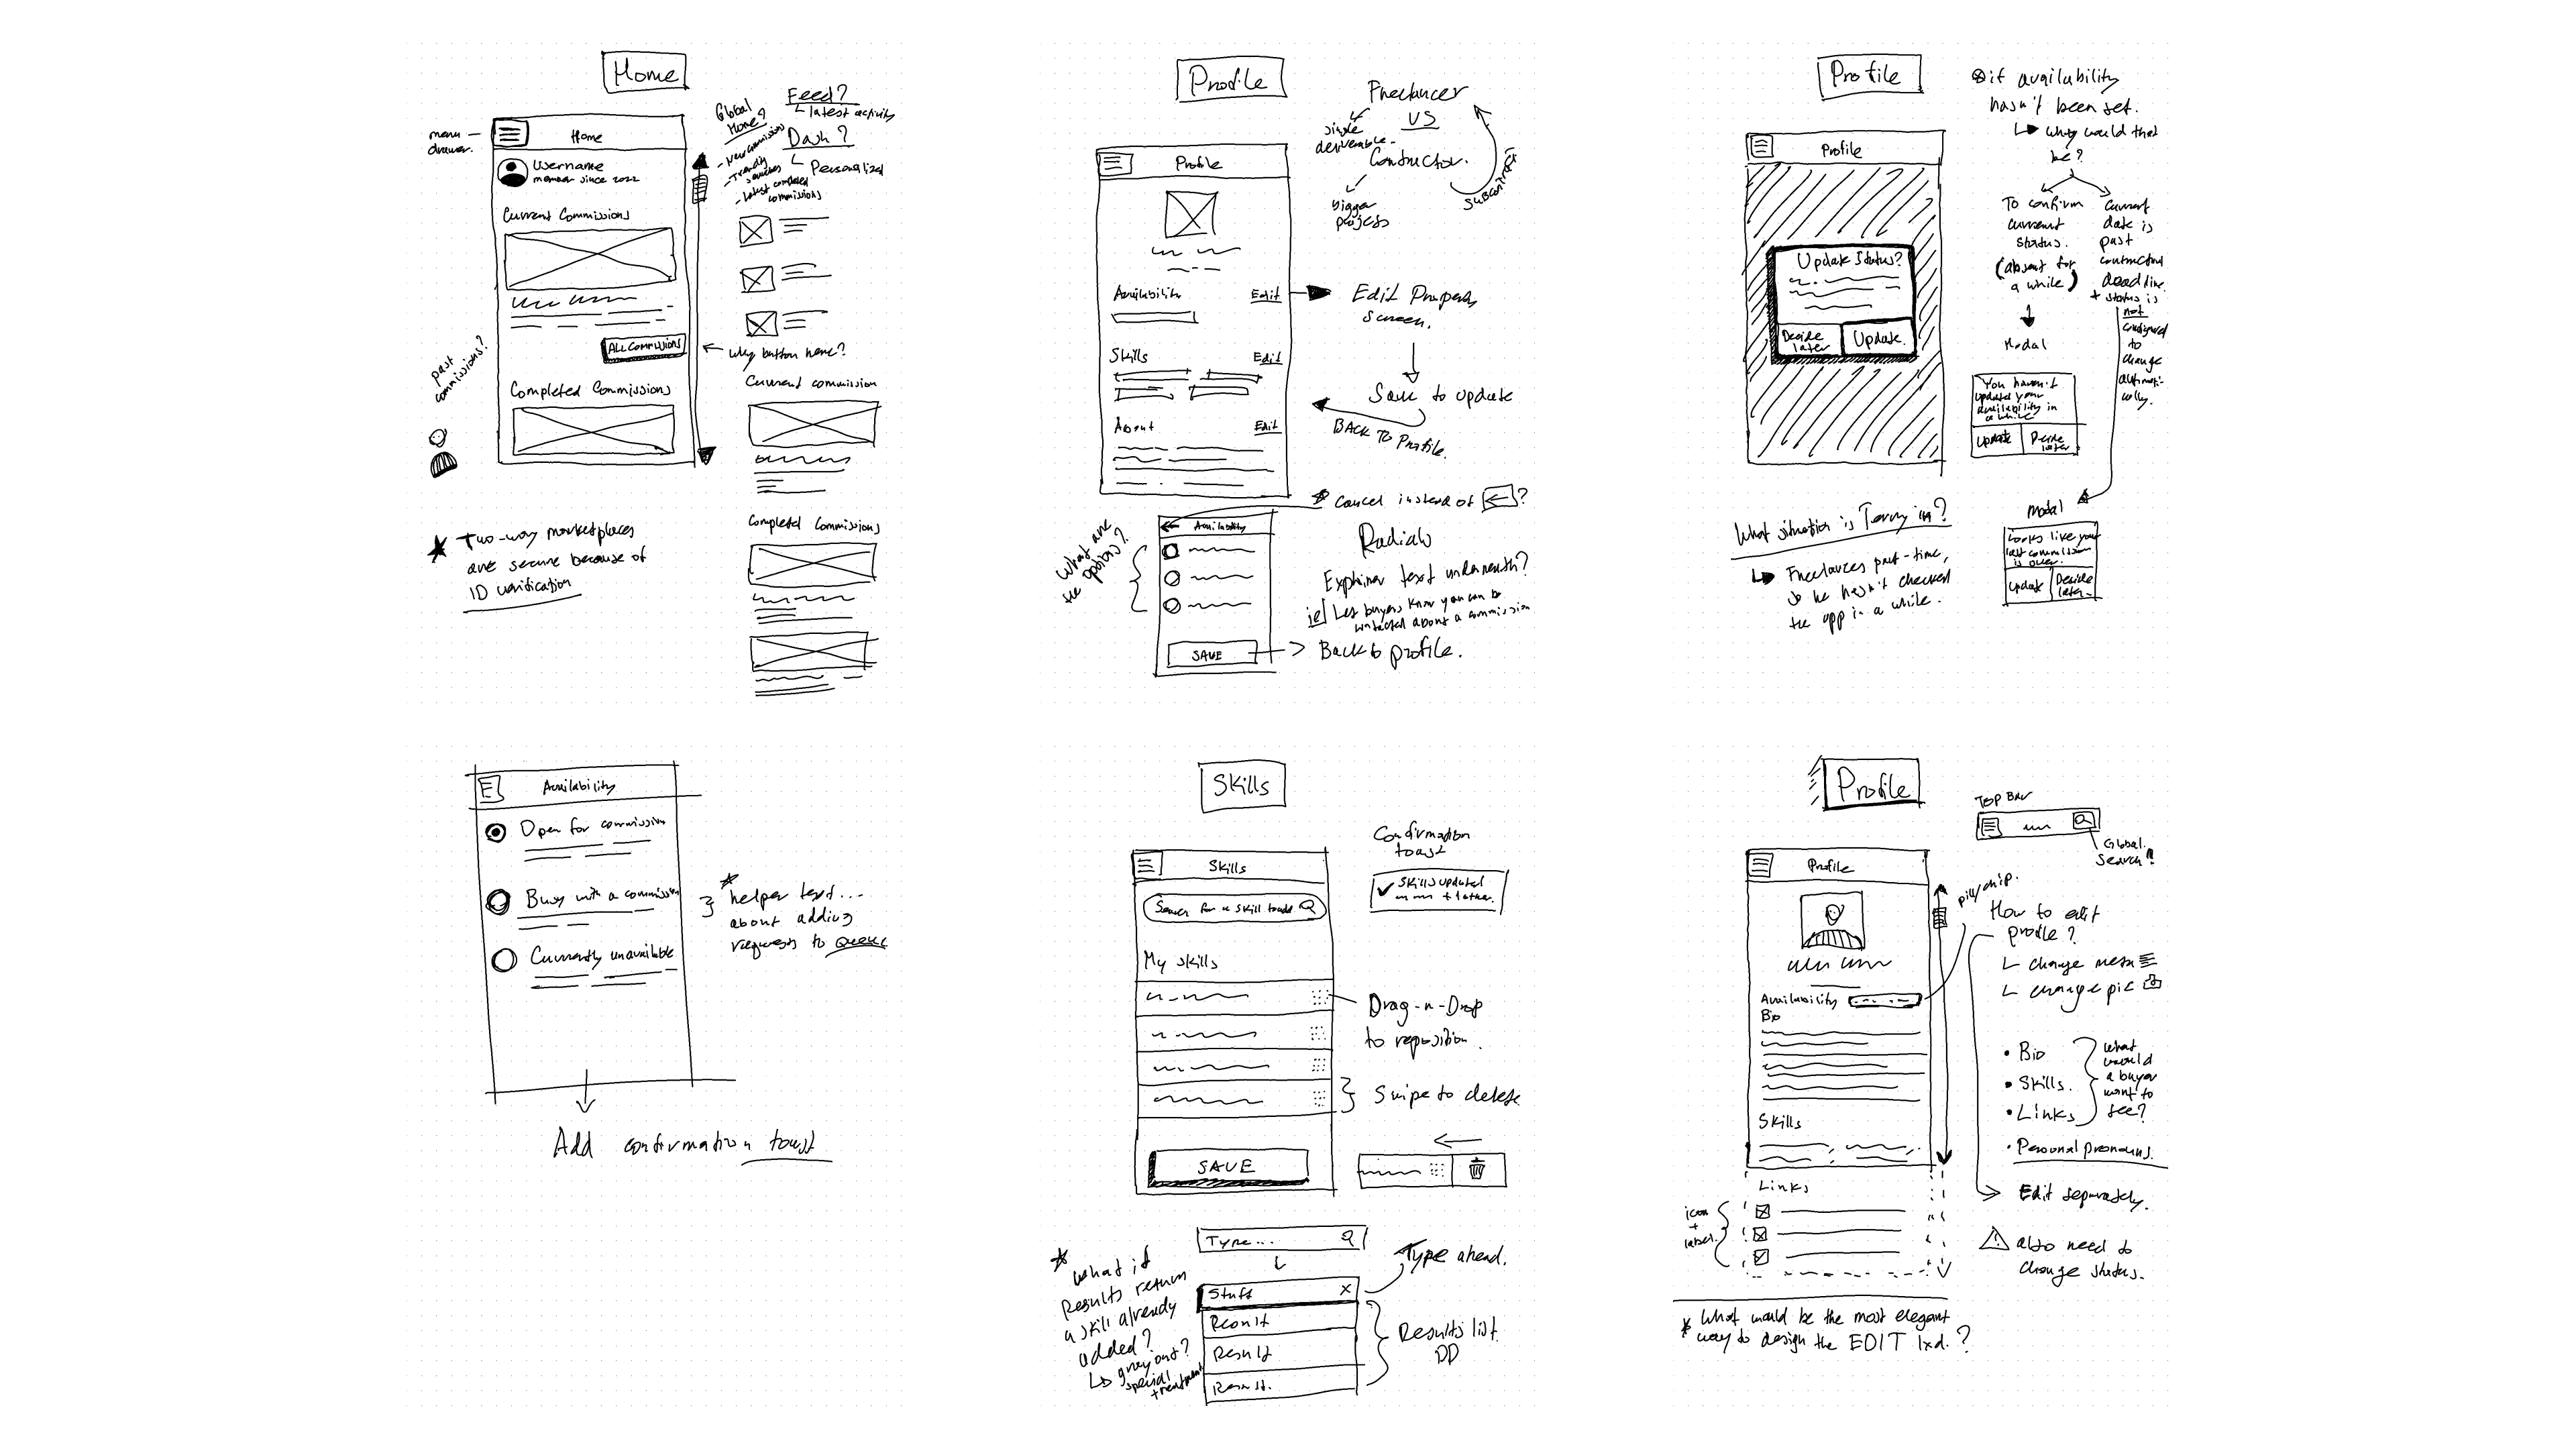 Home
menu
drawer.
Home
Username
member since 2022
Current Commissions
ALL Commissions
Completed Commissions
past
commissions?
Global
Home?
- New commissions
- Trending
searches
- Latest completed
commissions
Feed?
latest activity
Dash?
Personalized
why button here?
Current commission
Completed Commissions
Two-way marketplaces
are secure because of
ID verification
Profile
Profile
Availability Edit
Skills Edit
About Edit
Freelancer
VS
single
deliverable
Contractor.
bigger
projects
Subcontract
Edit Property
screen.
Save to update
BACK TO Profile.
Cancel instead of ?
What are
the options?
Availability
SAVE
Radials
Explainer text underneath?
ie Let buyers know you can be
contacted about a commission
Back to profile.
Profile
Profile
Update Status?
Decide
later
Update
if availability
hasn't been set.
why would that
be?
To confirm
current
status.
(absent for
a while)
Modal
You haven't
updated your
availability in
a while
Update
Decide
later
Current
date is
past
contracted
deadline
+ status is
not
configured
to
change
automati-
cally.
What situation is Terry in?
Freelances part-time,
so he hasn't checked
the app in a while.
modal
Looks like your
last commission
is over.
Update
Decide
later
Availability
Open for commission
Busy with a commission
Currently unavailable
helper text...
about adding
requests to queue
Add confirmation toast
Skills
Skills
Search for a skill to add
My skills
SAVE
Confirmation
toast
Skills updated
Drag-n-Drop
to reposition.
Swipe to delete
Type...
Stuff X
Result
Result
Result.
Type ahead.
Results list
DD
What if
Results return
a skill already
added?
grey out?
special
treatment
Profile
TOP BAR
Global.
Search!!
Profile
Availability
Bio
Skills
Links
icon
+
label.
pill/chip.
How to edit
profile?
change menu
change pic
• Bio
• Skills.
• Links
• Personal pronouns.
what
would
a buyer
want to
see?
Edit separately.
also need to
change status.
* What would be the most elegant
way to design the EDIT